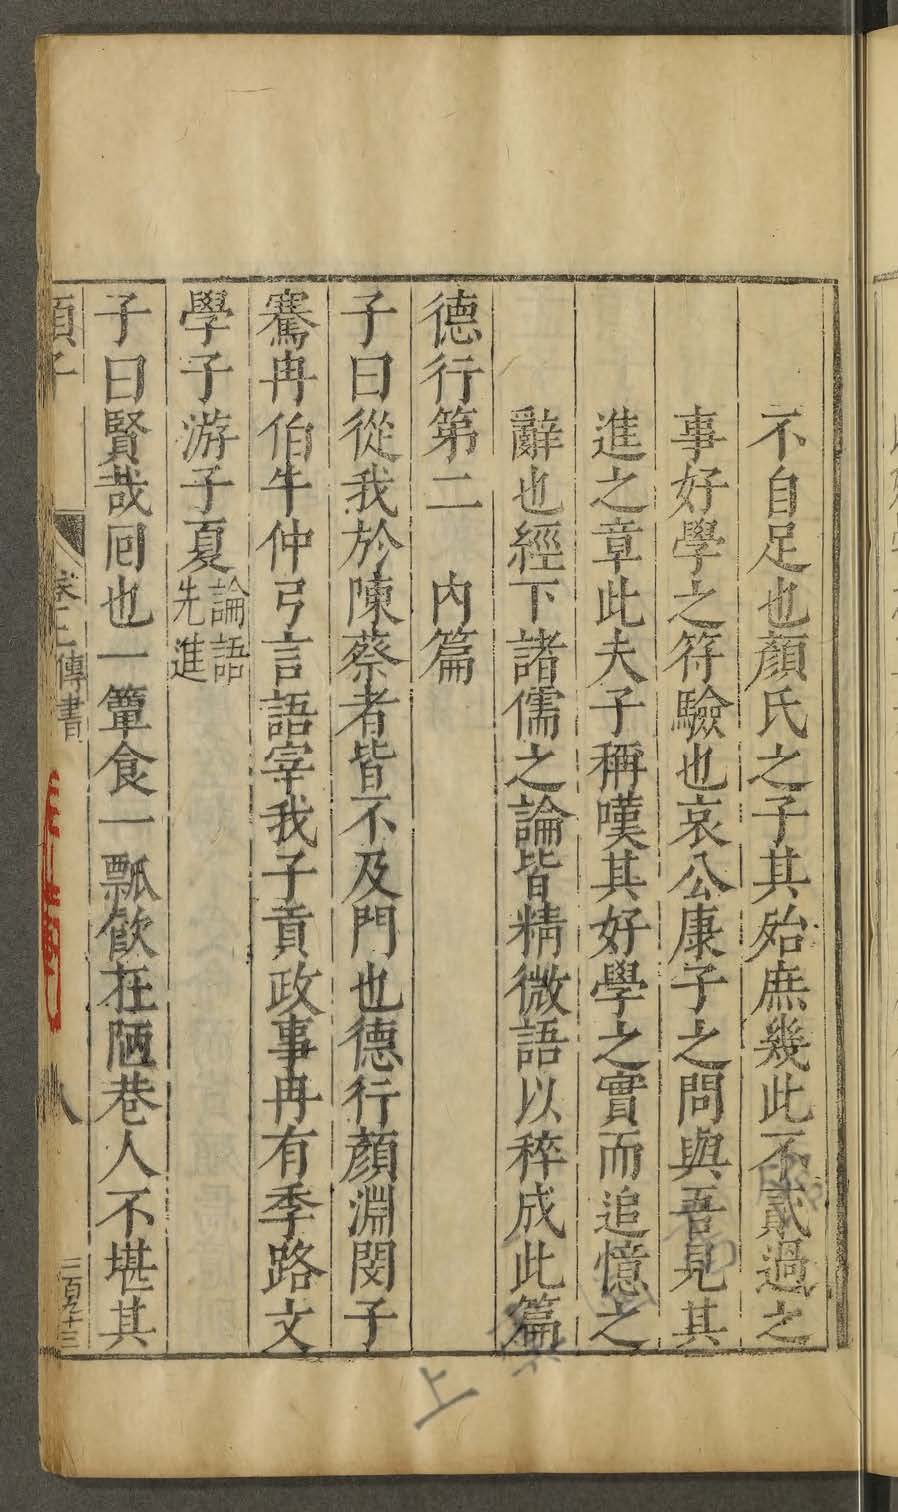 不自足也顏氏之子其殆庶幾此不貳過之
事好學之符驗也哀公康子之問與吾見其
進之章此夫子稱嘆其好學之實而追憶之
辭也經下諸儒之論皆精微語以稡成此篇
德行第二　內篇
子曰從我於陳蔡者皆不及門也德行顏淵閔子
騫冉伯牛仲弓言語宰我子貢政事冉有季路文
學子游子夏論語先進
子曰賢哉囘也一簞食一瓢飲在陋巷人不堪其
卷二傳書
八
上